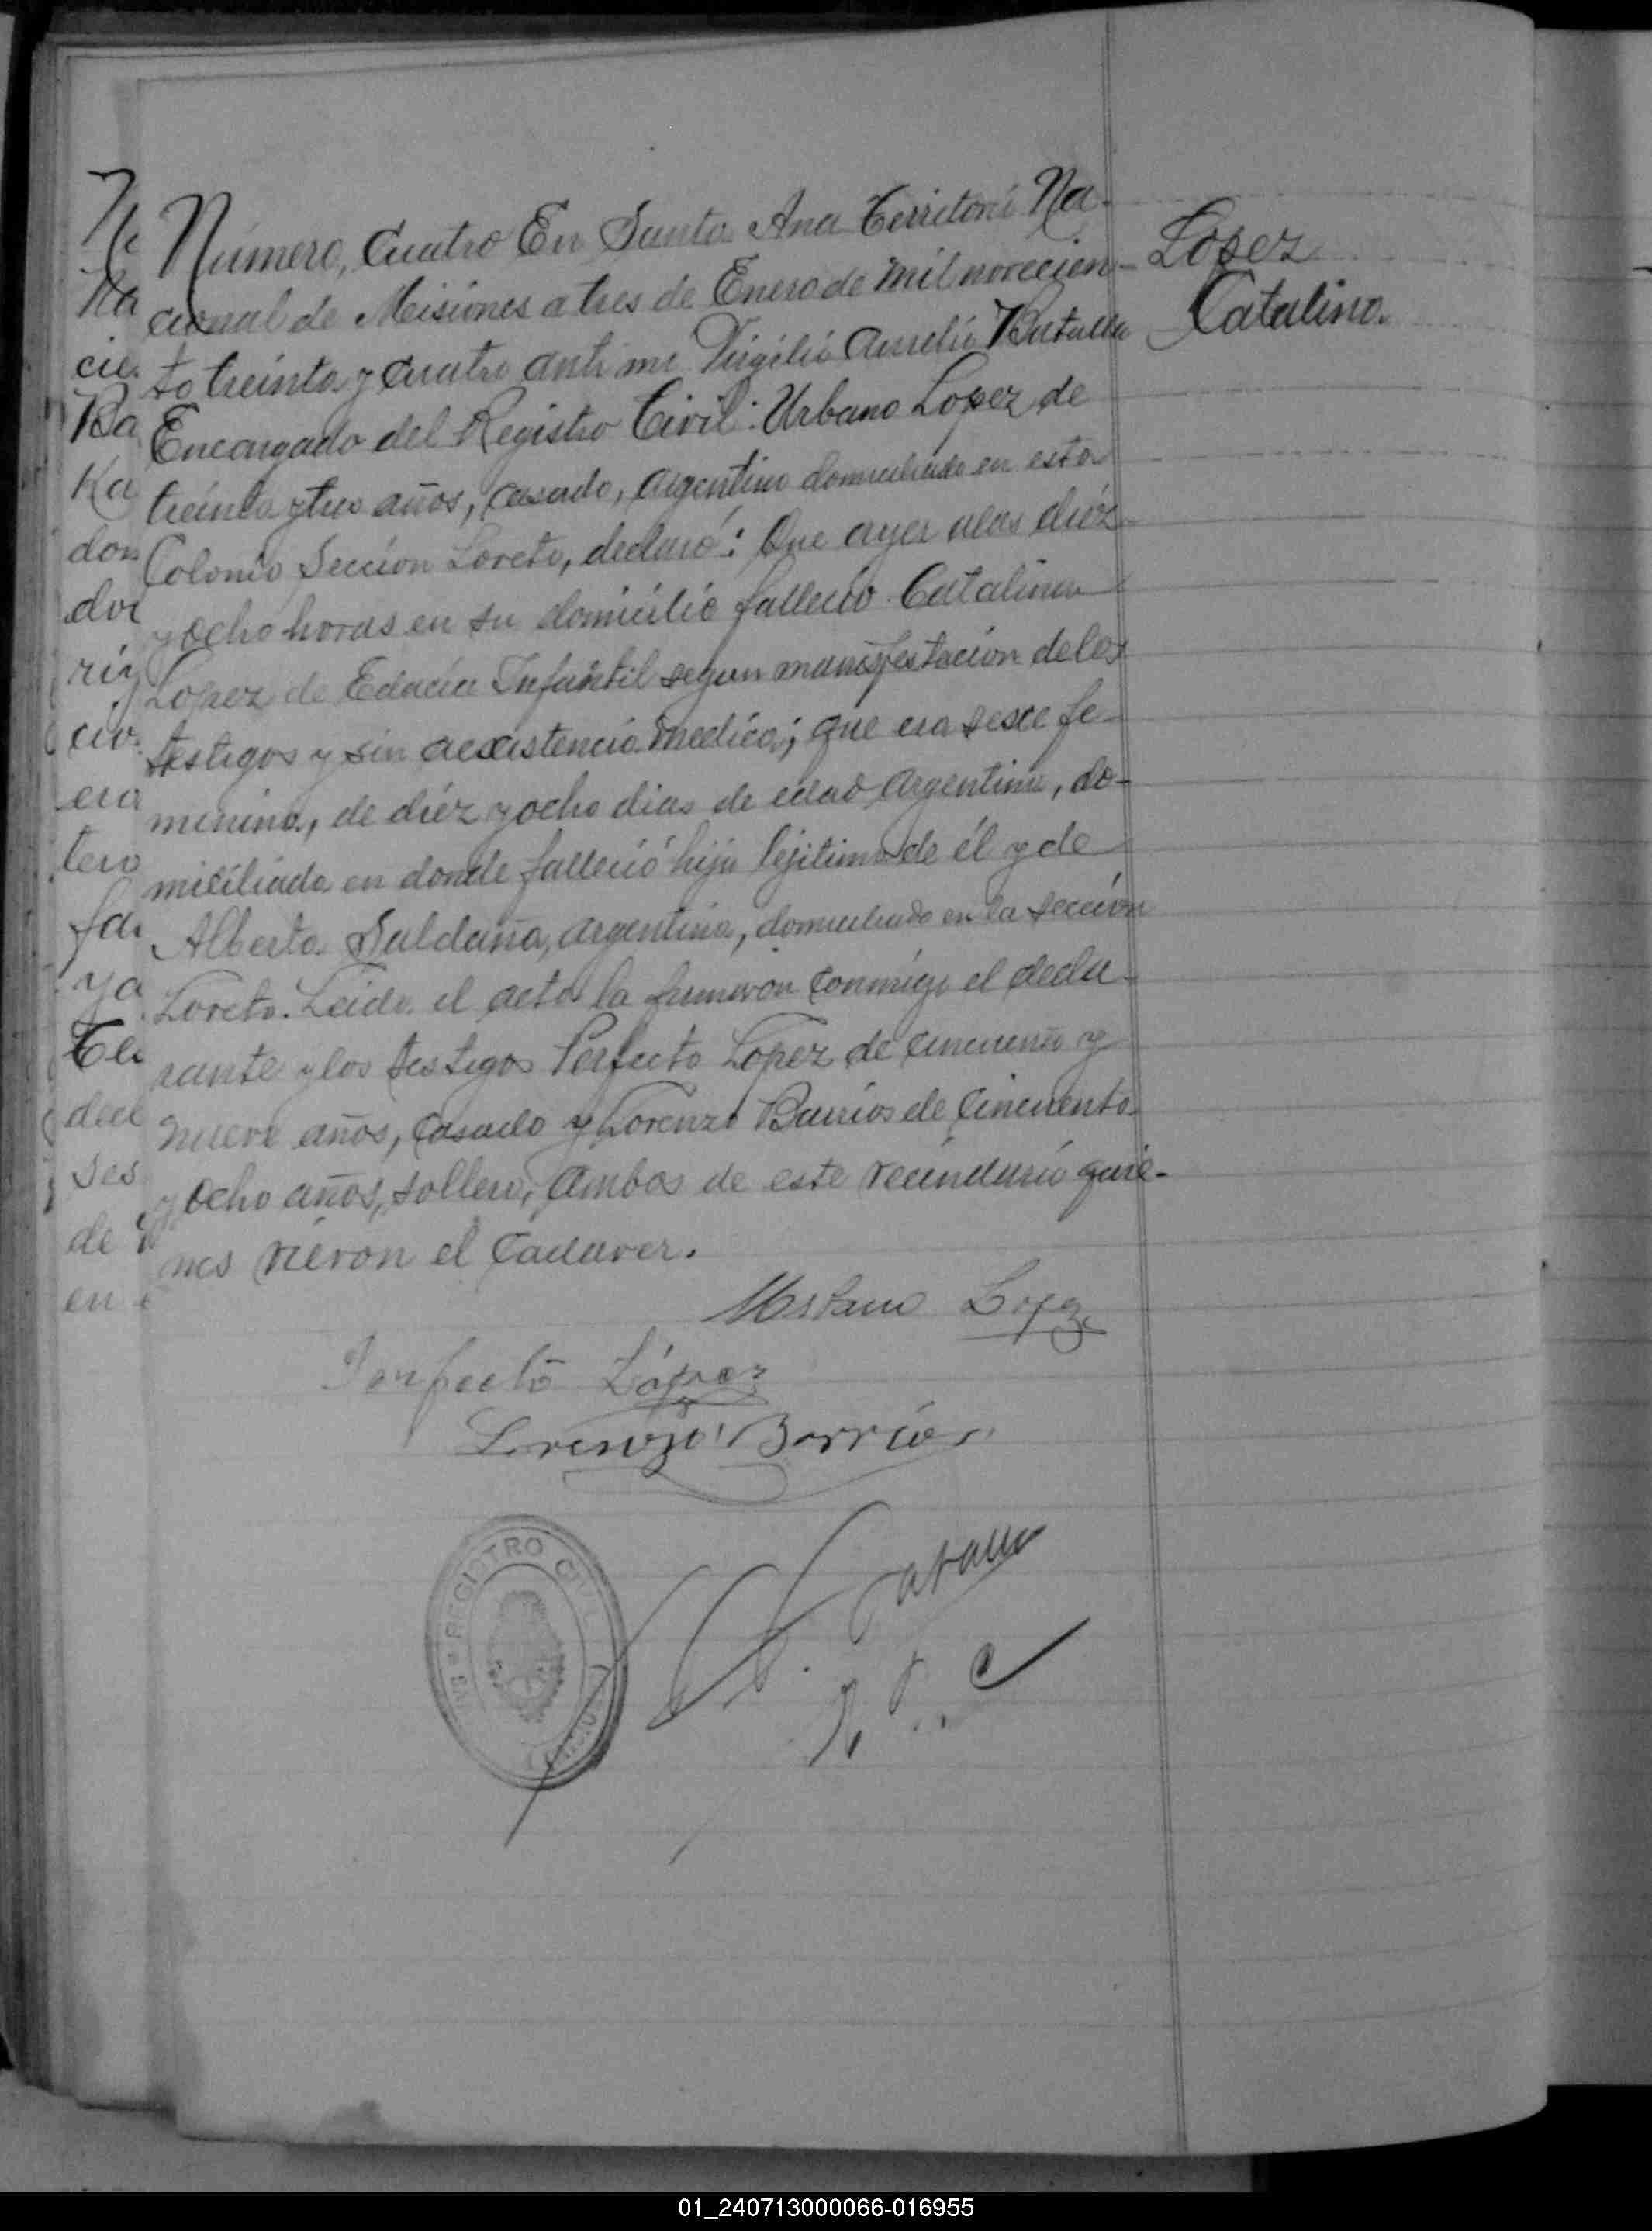 Número, Cuatro En Santa Ana Territorio Na-
cional de Misiones a tres de Enero de mil novecien-
to treinta y cuatro ante me Virgilio Aurelio Batalla
Encargado del Registro Civil: Urbano Lopez de
treinta y tres años, casado, Argentino domiciliado en esta
Colonia Sección Loreto, declaró: Que ayer a las diéz
y ocho horas en su domicilio fallecio Catalina
Lopez de Edacia Infantil segun manifestacion de los
testigos y sin acxistencia medica; que era sexe fe-
menino, de diéz y ocho dias de edad Argentina, do-
miciliada en donde falleció hija lejitima de él y de
Alberta Saldaña, argentina, domiciliado en la sección
Loreto. Leida el acta la firmaron conmigo el decla-
rante y los testigos Perfecto Lopez de cincuenta y
nueve años, casado y Lorenzo Barrios de Cincuenta
y ocho años, soltero, ambos de este vecindario quie-
nes vieron el Cadaver.
Lopez
Catalina.
Urbano Lopez
Perfecto López
Lorenzo Barrios
REGISTRO CIVIL
Ne
Na
cie.
Ba
Ka
don
doc
rig
civ.
era
tero
fdi
ya
Te
decl
ses
de
en
01_240713000066-016955